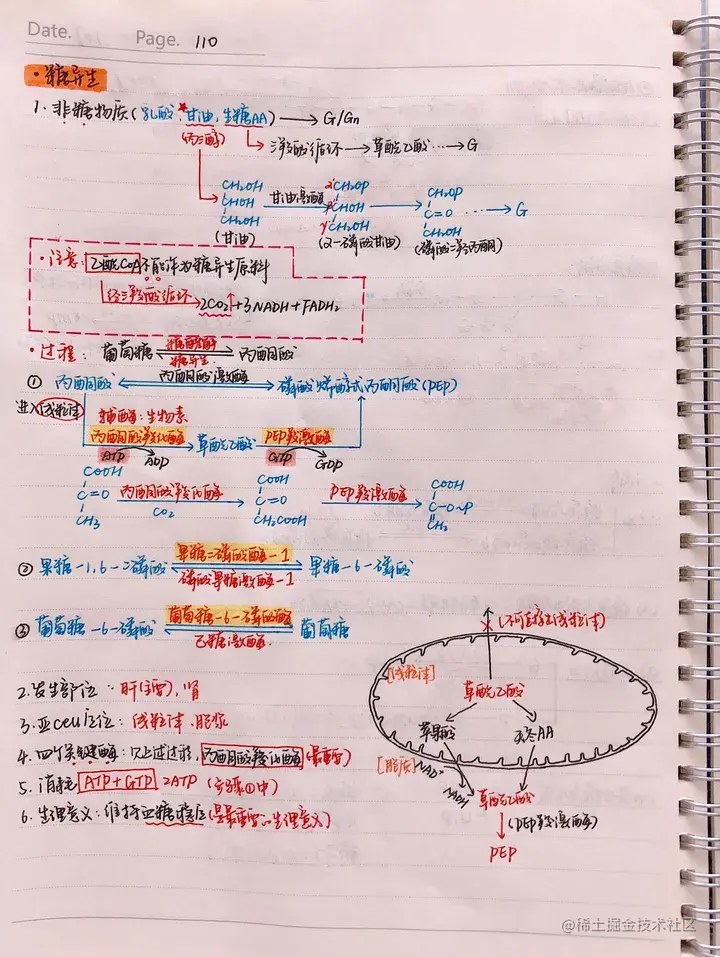 Date.
Page. 110
·糖异生
1. 非糖物质(乳酸,★甘油,生糖AA) → G/Gn
(丙三醇)
三羧酸循环 → 草酰乙酸 ···→ G
CH₂OH 甘油激酶 2' CH₂OP CH₂OP
CHOH CHOH C=O ···→ G
CH₂OH 1' CH₂OH CH₂OH
(甘油) (α-磷酸甘油) (磷酸二羟丙酮)
·注意: 乙酰CoA不能作为糖异生原料
经三羧酸循环 2CO₂↑+3NADH+FADH₂
·过程: 葡萄糖 糖酵解 丙酮酸
糖异生.
① 丙酮酸 丙酮酸激酶 磷酸烯醇式丙酮酸(PEP)
进入线粒体
辅酶:生物素
丙酮酸羧化酶 草酰乙酸 PEP羧激酶
ATP ADP GTP GDP
COOH COOH COOH
C=O 丙酮酸羧化酶 C=O PEP羧激酶 C-O~P
CH₃ CO₂ CH₂COOH CH₂
② 果糖-1,6-二磷酸 果糖二磷酸酶-1 果糖-6-磷酸
磷酸果糖激酶-1
③ 葡萄糖-6-磷酸 葡萄糖-6-磷酸酶 葡萄糖
己糖激酶.
2. 发生部位:肝(主要),肾
3. 亚cell定位:线粒体、胞浆
4. 四个关键酶:见上述过程,丙酮酸羧化酶(最重要)
5. 消耗 ATP+GTP 2ATP (步骤①中)
6. 生理意义:维持血糖稳定(是最重要的生理意义)
×(不可转出线粒体)
[线粒体]
草酰乙酸
苹果酸 天冬AA
[胞质] NAD⁺
NADH
草酰乙酸
(PEP羧激酶)
PEP
@稀土掘金技术社区